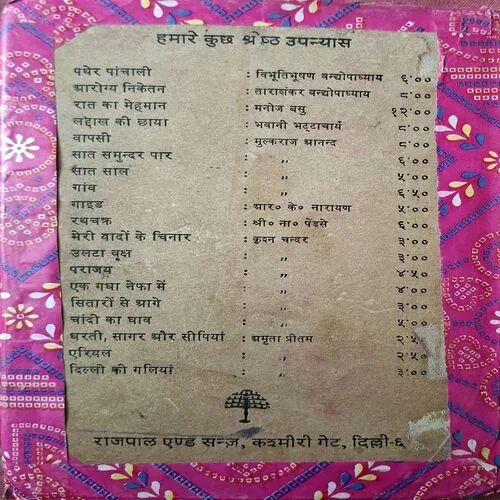 हमारे कुछ श्रेष्ठ उपन्यास
पथेर पांचाली : विभूतिभूषण वन्द्योपाध्याय ६·००
आरोग्य निकेतन : ताराशंकर वन्द्योपाध्याय ८·००
रात का मेहमान : मनोज बसु १२·००
लद्दाख की छाया : भवानी भट्टाचार्य ८·००
वापसी : मुल्कराज आनन्द ८·००
सात समुन्दर पार : ,, ६·५०
सात साल : ,, ६·००
गांव : ,, ६·५०
गाइड : आर० के० नारायण ५·००
रथचक्र : श्री० ना० पेंडसे ६·००
मेरी यादों के चिनार : कृश्न चन्दर ३·००
उलटा वृक्ष : ,, ३·००
पराजय : ,, ४·५०
एक गधा नेफा में : ,, ४·५०
सितारों से आगे : ,, ३·००
चांदी का घाव : ,, ५·००
धरती, सागर और सीपियां : अमृता प्रीतम २·५०
एरियल : ,, २·५०
दिल्ली की गलियां : ,, ३·००
राजपाल एण्ड सन्ज़, कश्मीरी गेट, दिल्ली-६